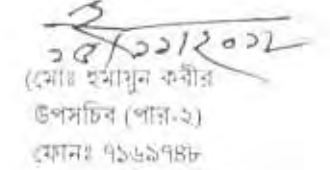 ১৫/১১/২০১২
(মোঃ হুমায়ুন কবীর
উপসচিব (পার-২)
ফোনঃ ৭১৬৯৭৪৮